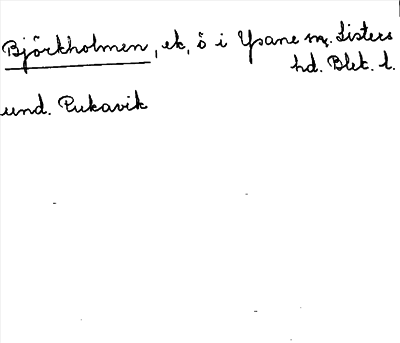 Björkholmen, ek, ö i Ysane sn. Listers
hd. Blek. l.
und. Pukavik